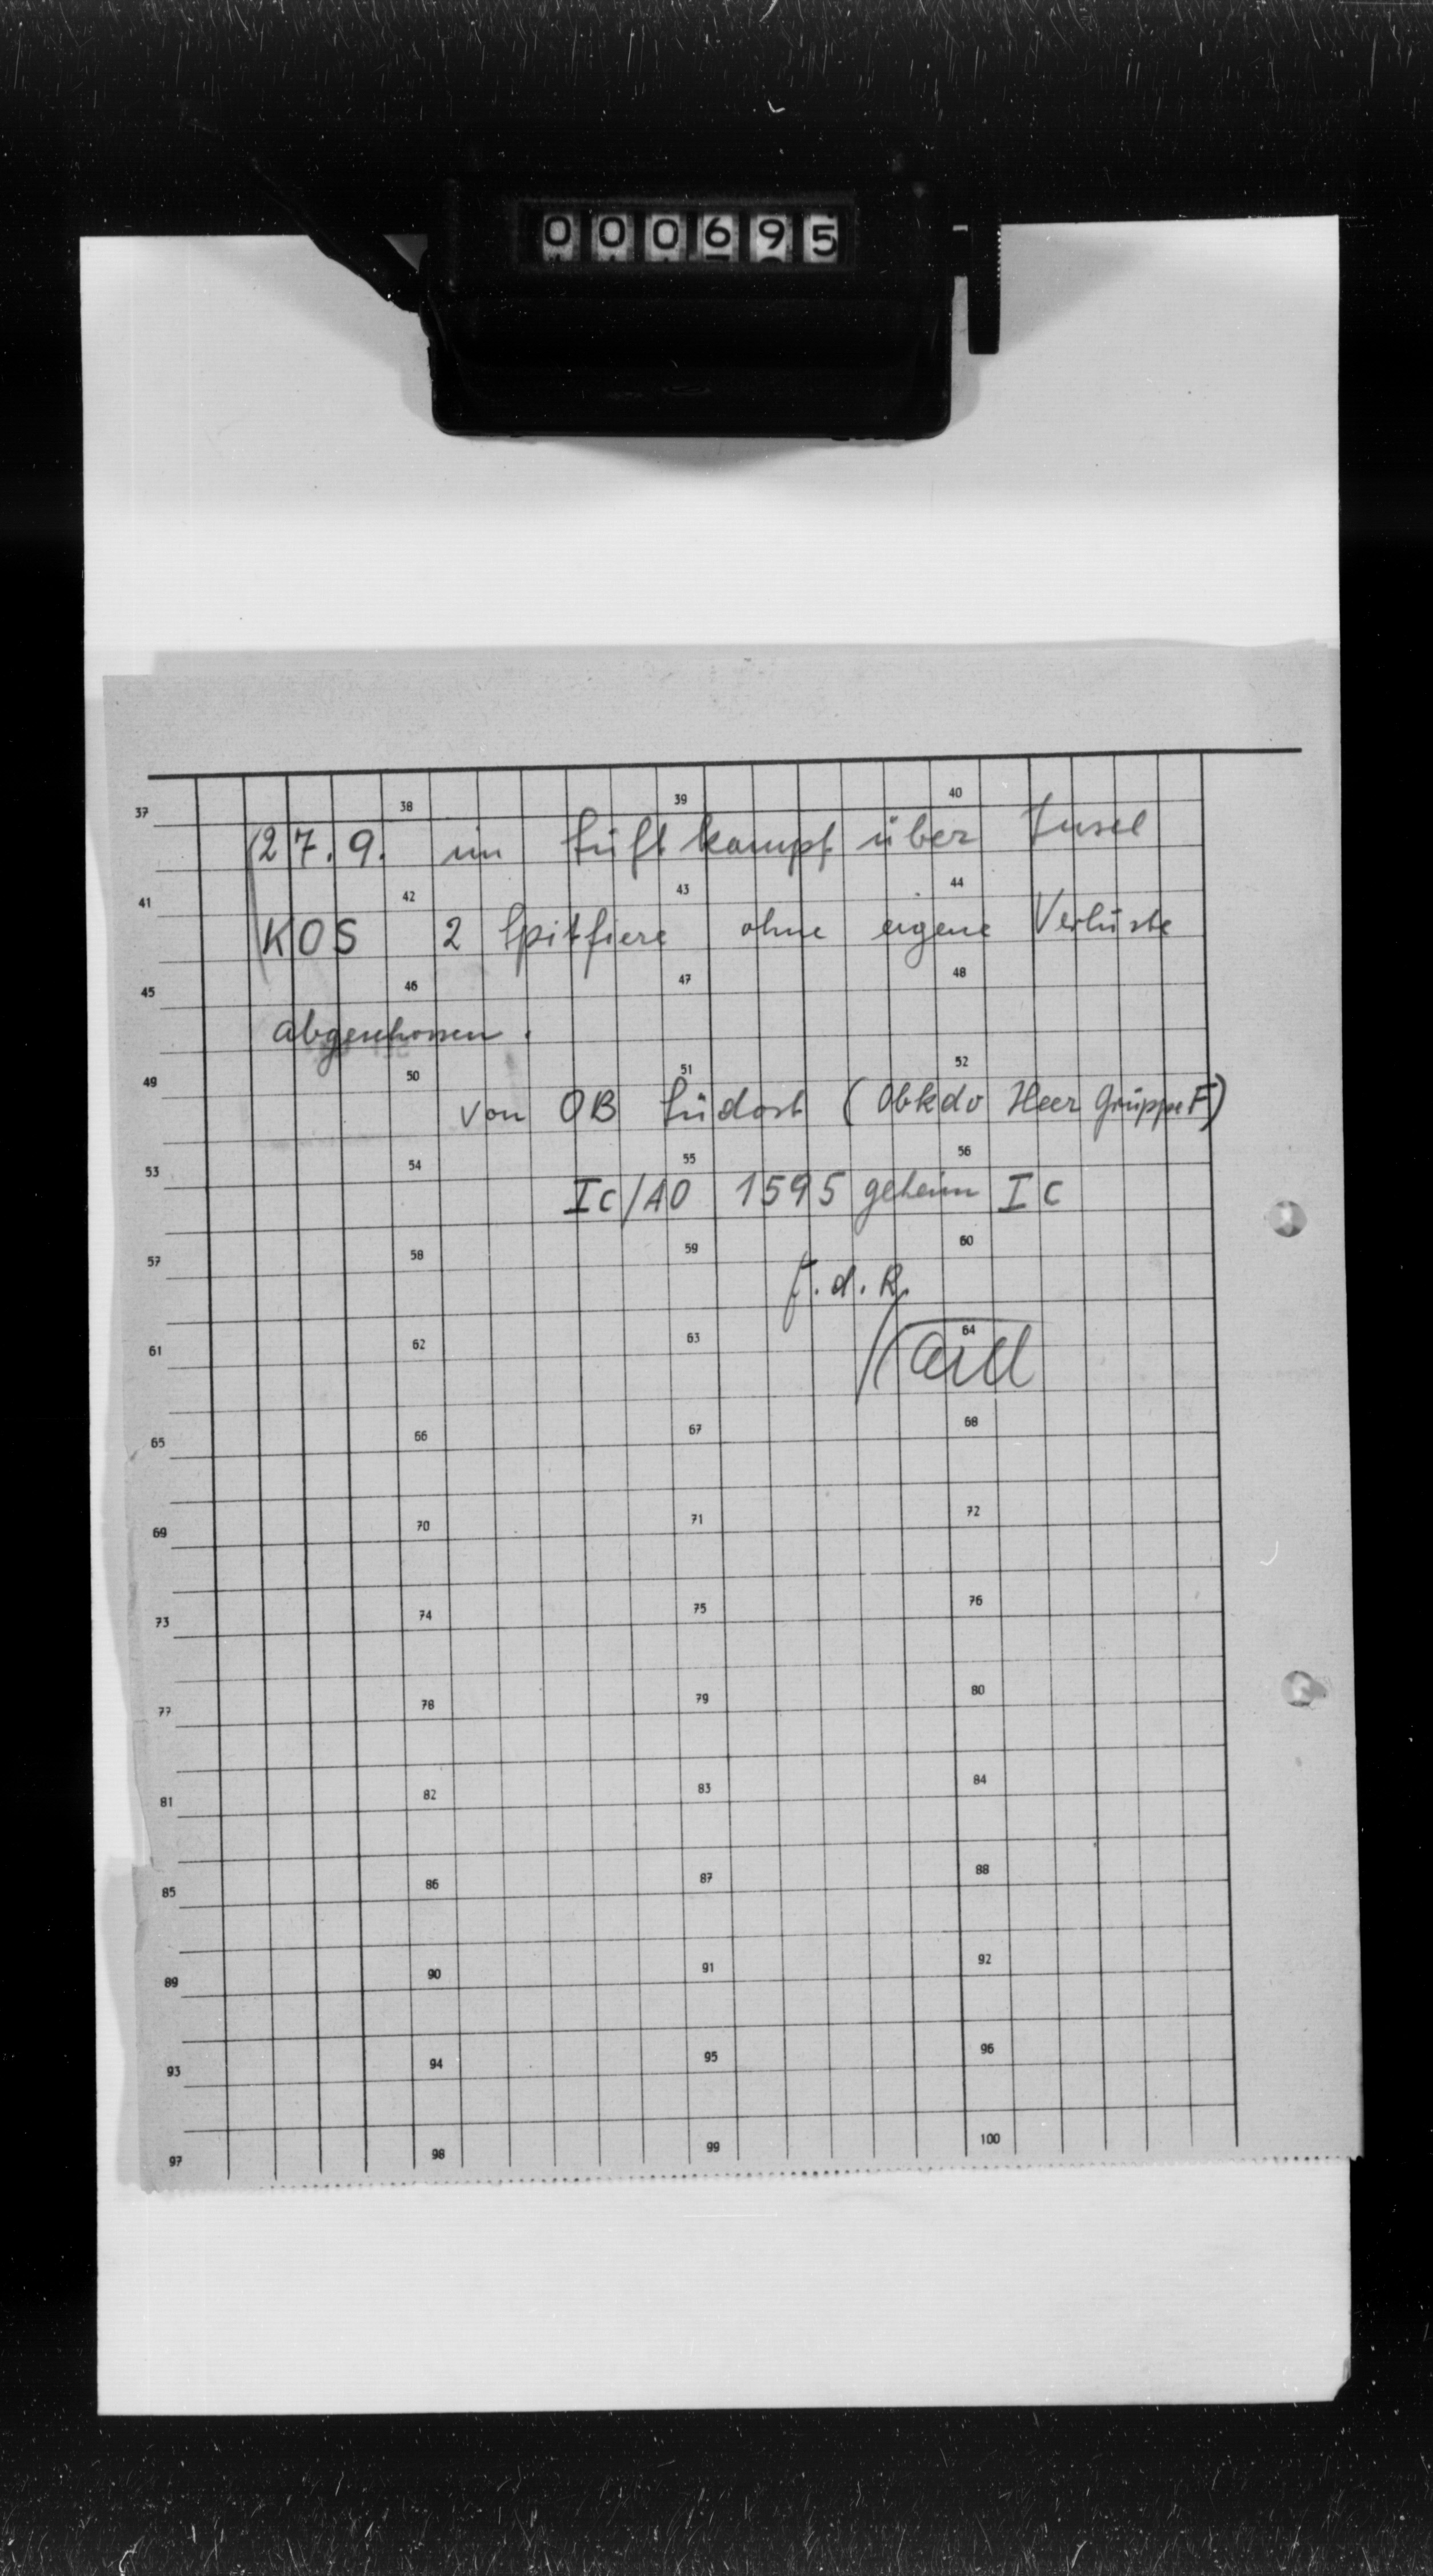 000695
37 38 39 40
27.9. im Luftkampf über Insel
41 42 43 44
KOS 2 Spitfiere ohne eigene Verluste
45 46 47 48
abgeschossen.
49 50 51 52
von OB Südost (Obkdo Heer Gruppe F)
53 54 55 56
Ic/AO 1595 geheim Ic
57 58 59 60
F.d.R.
61 62 63 64
65 66 67 68
69 70 71 72
73 74 75 76
77 78 79 80
81 82 83 84
85 86 87 88
89 90 91 92
93 94 95 96
97 98 99 100